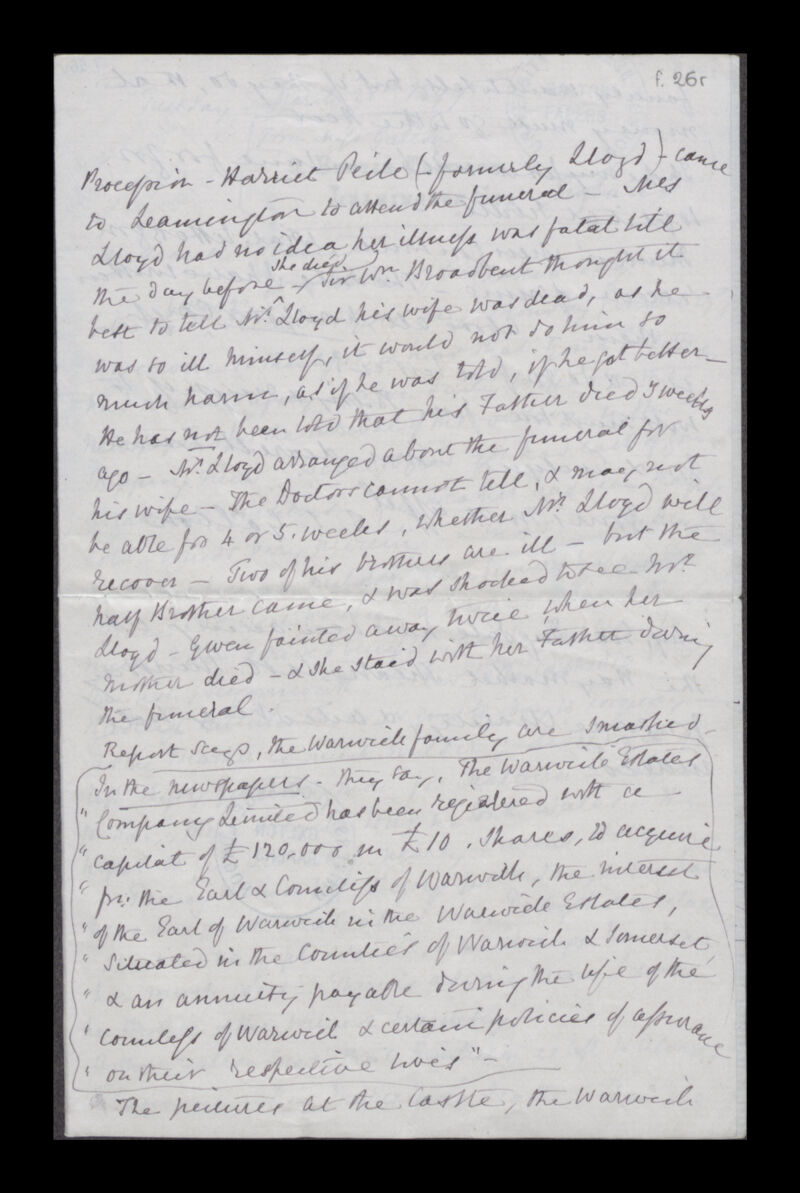 f. 26r
Procession - Harriet Peile (- formerly Lloyd) - came
to Leamington to attend the funeral - Mrs
Lloyd had no idea her illness was fatal till
the day before she died - Sir Wm. Broadbent thought it
best to tell Mr. Lloyd his wife was dead, as he
was so ill himself, it would not do him so
much harm, as if he was told, if he got better -
He has not been told that his Father died 3 weeks
ago - Mr. Lloyd arranged about the funeral for
his wife - The Doctors cannot tell, & may not
be able for 4 or 5. weeks, whether Mr. Lloyd will
recover - Two of his brothers are ill - but the
half Brother came, & was shocked to see Mr.
Lloyd - Gwen fainted away twice when her
Mother died - & she staid with her Father during
the funeral.
Report says, the Warwick family are smashed -
In the newspapers - they say, The Warwick Estates
" Company Limited has been registered with a
" capital of £120,000 in £10. shares, to acquire
" fm: the Earl & Countess of Warwick, the interest
" of the Earl of Warwick in the Warwick Estates,
" situated in the Counties of Warwick & Somerset,
" & an annuity payable during the life of the
" Countess of Warwick & certain policies of assurance
" on their respective lives" -
The pictures at the Castle, the Warwick